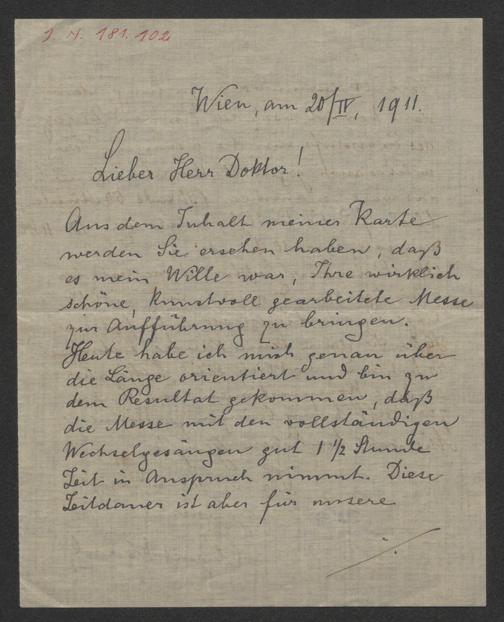 I. N. 181.102
Wien, am 20/IV, 1911.
Lieber Herr Doktor!
Aus dem Inhalt meiner Karte
werden Sie ersehen haben, daß
es mein Wille war, Ihre wirklich
schöne, kunstvoll gearbeitete Messe
zur Aufführung zu bringen.
Heute habe ich mich genau über
die Länge orientiert und bin zu
dem Resultat gekommen, daß
die Messe mit den vollständigen
Wechselgesängen gut 1 1/2 Stunde
Zeit in Anspruch nimmt. Diese
Zeitdauer ist aber für unsere
./.